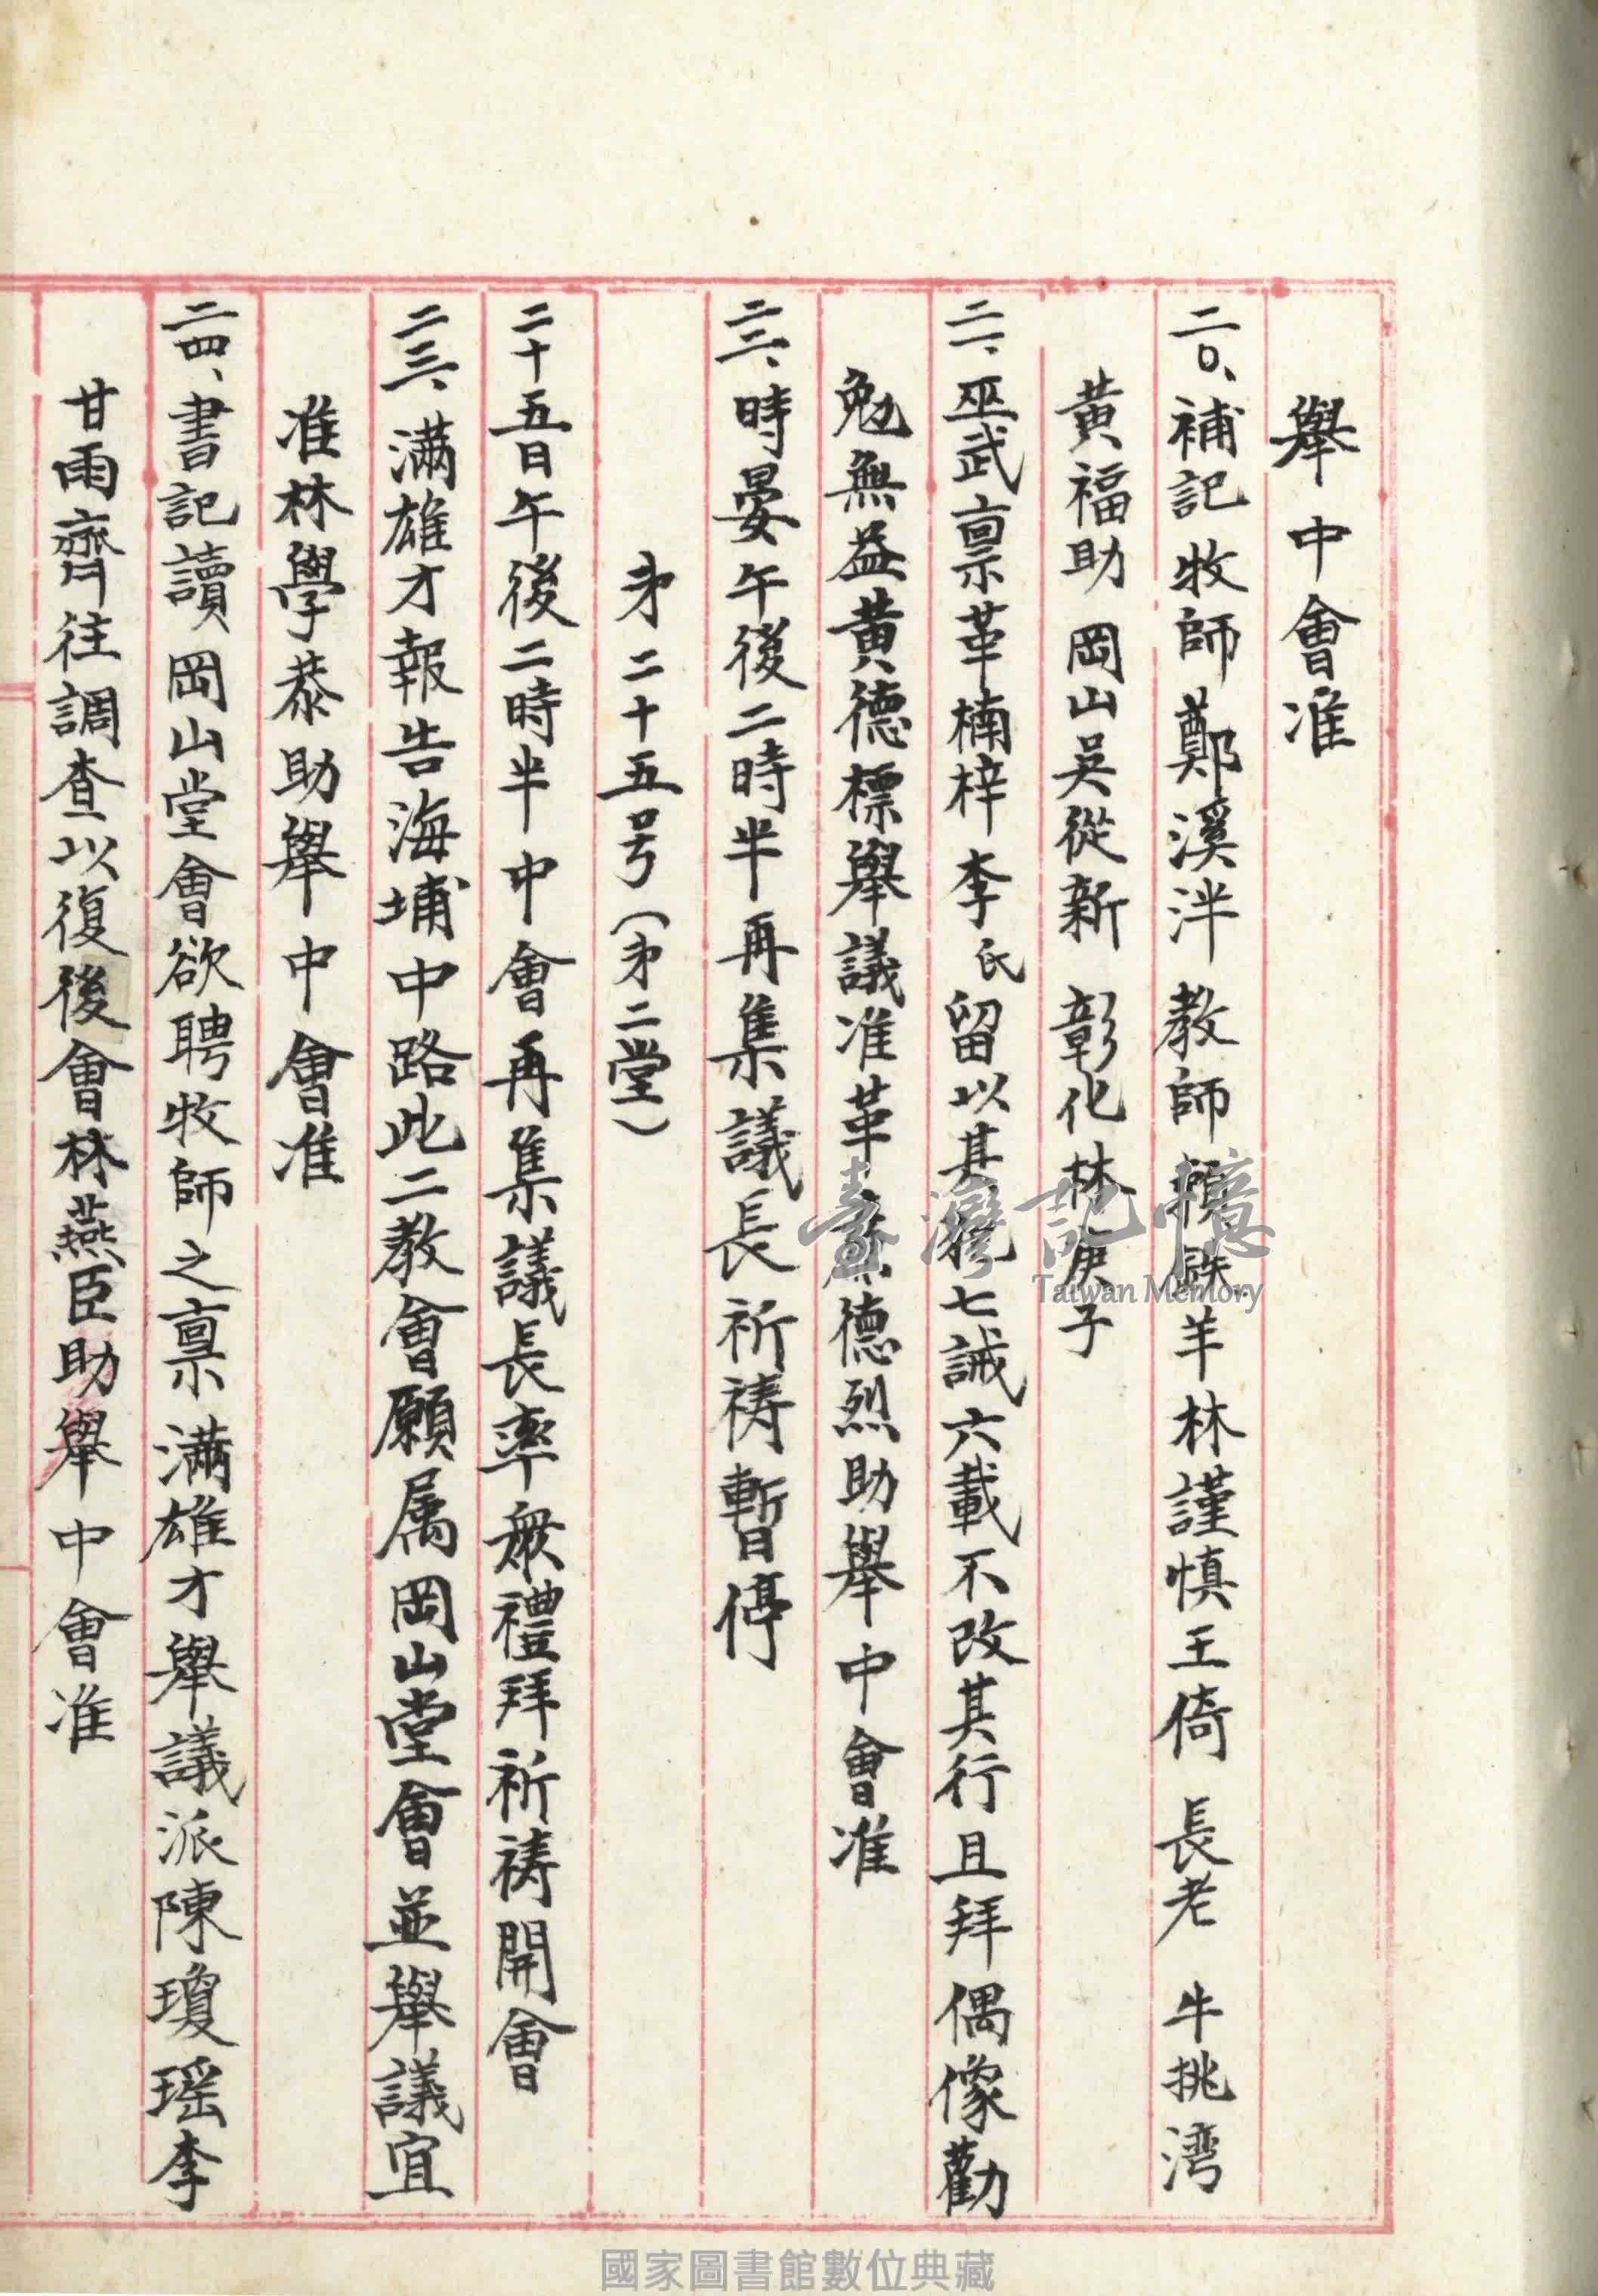 舉中會准
二〇、補記牧師鄭溪泮 教師 賴羊林謹慎王倚 長老 牛挑湾
黄福助 岡山吳從新 彰化林庚子
二一、巫武禀革楠梓李氏留以其犯七誡六載不改其行且拜偶像勸
勉無益黄德標舉議准革 德烈助舉中會准
二二、時晏午後二時半再集議長祈祷暫停
㐧二十五号(㐧二堂)
二十五日午後二時半中會再集議長率衆禮拜祈祷開會
二三、满雄才報告海埔中路此二教會願属岡山堂會並舉議宜
准林學恭助舉中會准
二四、書記讀岡山堂會欲聘牧師之禀满雄才舉議派陳瓊瑶李
甘雨齊往調查以復後會林燕臣助舉中會准
臺灣記憶
Taiwan Memory
國家圖書館數位典藏